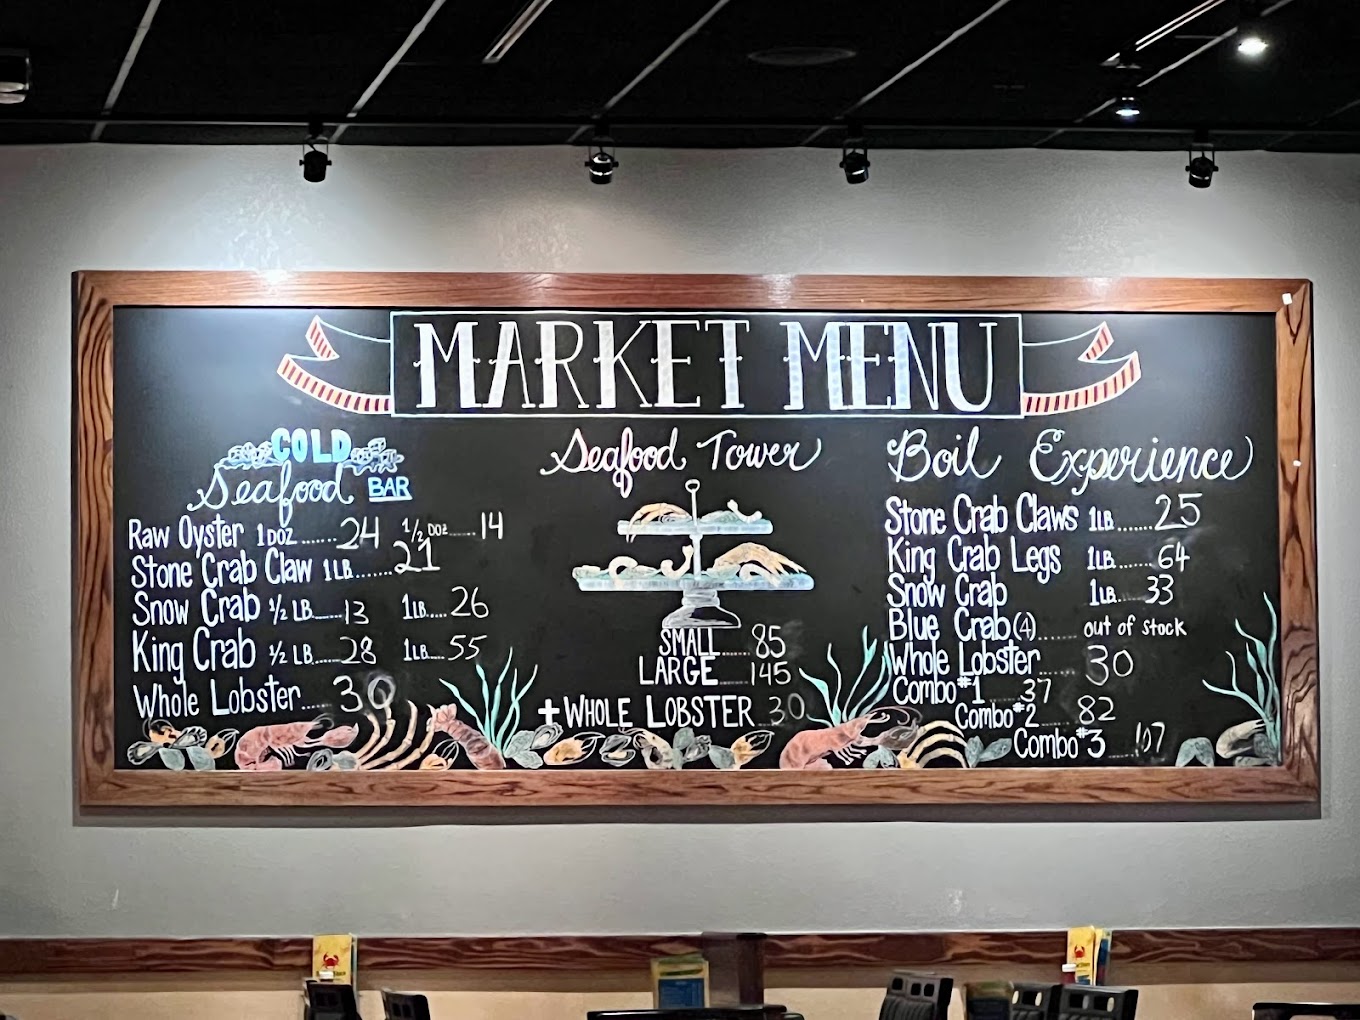 MARKET MENU
COLD
Seafood BAR
Raw Oyster 1 DOZ.......24 1/2 DOZ......14
Stone Crab Claw 1 LB.......21
Snow Crab 1/2 LB......13 1LB....26
King Crab 1/2 LB......28 1LB....55
Whole Lobster.....30
Seafood Tower
SMALL.....85
LARGE.....145
+WHOLE LOBSTER...30
Boil Experience
Stone Crab Claws 1LB.......25
King Crab Legs 1LB.......64
Snow Crab 1LB.....33
Blue Crab(4)....... out of stock
Whole Lobster...... 30
Combo#1.....37
Combo#2......82
Combo#3.....107